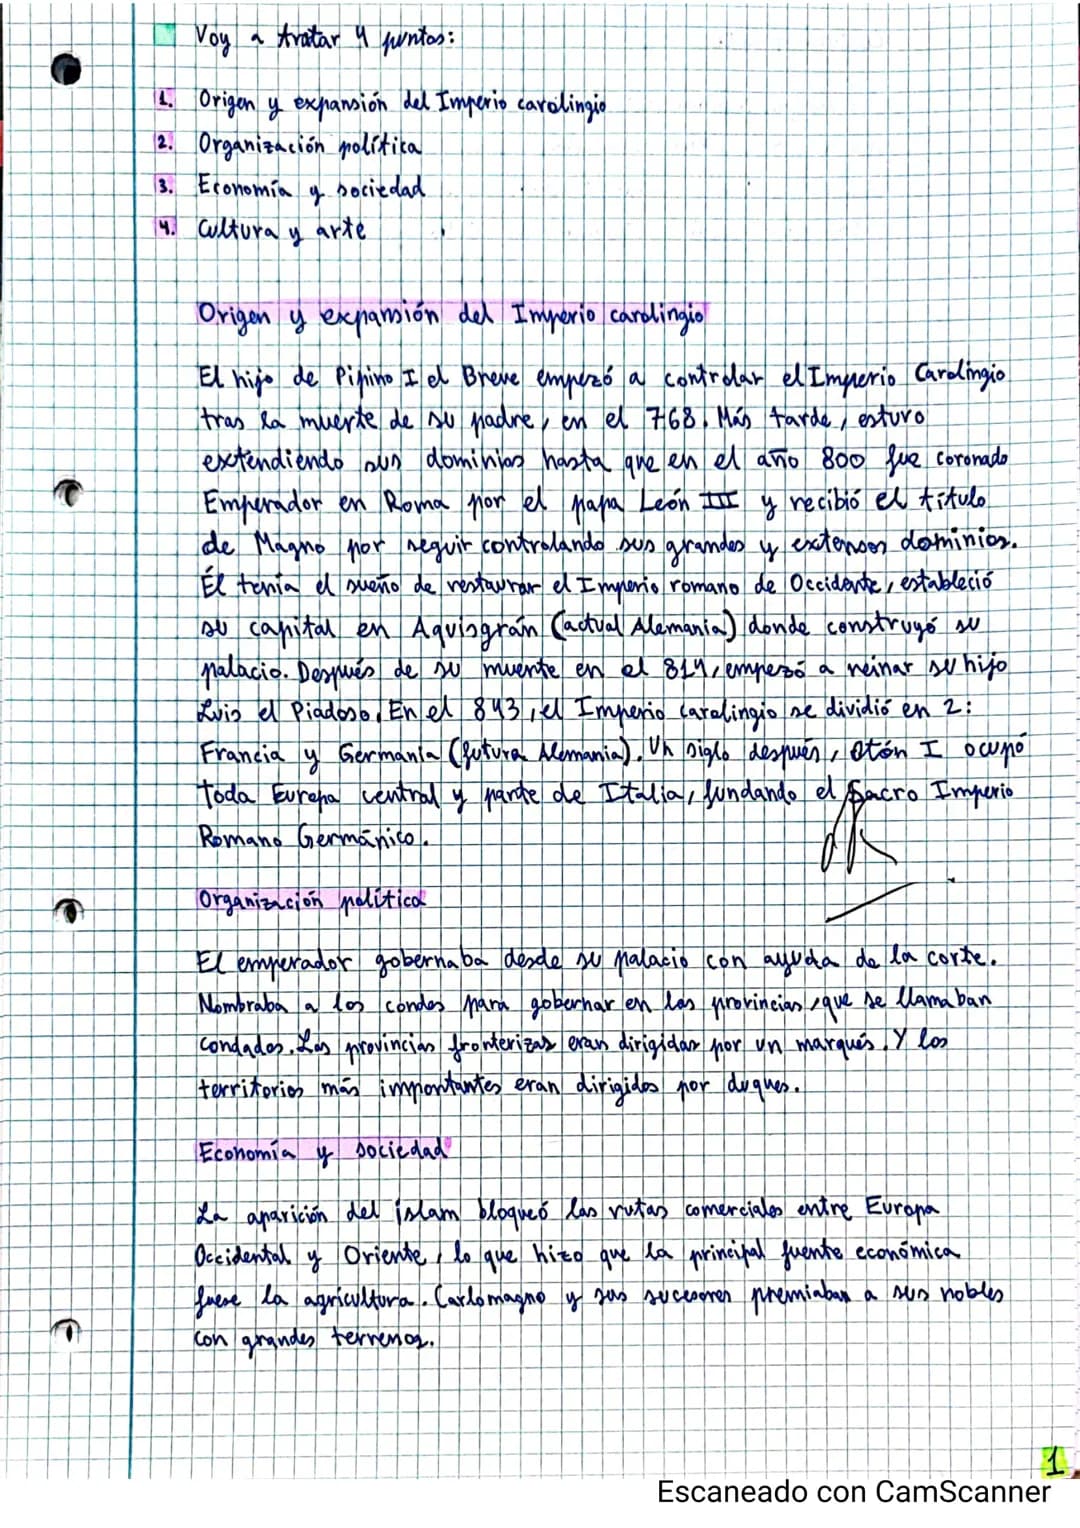 Voy a tratar 4 puntos:
1. Origen y expansión del Imperio carolingio
2. Organización política
3. Economía y sociedad
4. Cultura y arte
Origen y expansión del Imperio carolingio
El hijo de Pipino I el Breve empezó a controlar el Imperio Carolingio
tras la muerte de su padre, en el 768. Más tarde, estuvo
extendiendo sus dominios hasta que en el año 800 fue coronado
Emperador en Roma por el papa León III y recibió el título
de Magno por seguir controlando sus grandes y extensos dominios.
Él tenía el sueño de restaurar el Imperio romano de Occidente, estableció
su capital en Aquisgrán (actual Alemania) donde construyó su
palacio. Después de su muerte en el 814, empezó a reinar su hijo
Luis el Piadoso. En el 843, el Imperio carolingio se dividió en 2:
Francia y Germania (futura Alemania). Un siglo después, Otón I ocupó
toda Europa central y parte de Italia, fundando el Sacro Imperio
Romano Germánico.
Organización política
El emperador gobernaba desde su palacio con ayuda de la corte.
Nombraba a los condes para gobernar en las provincias, que se llamaban
condados. Las provincias fronterizas eran dirigidas por un marqués. Y los
territorios más importantes eran dirigidos por duques.
Economía y sociedad
La aparición del islam bloqueó las rutas comerciales entre Europa
Occidental y Oriente, lo que hizo que la principal fuente económica
fuese la agricultura. Carlomagno y sus sucesores premiaban a sus nobles
con grandes terrenos.
1
Escaneado con CamScanner